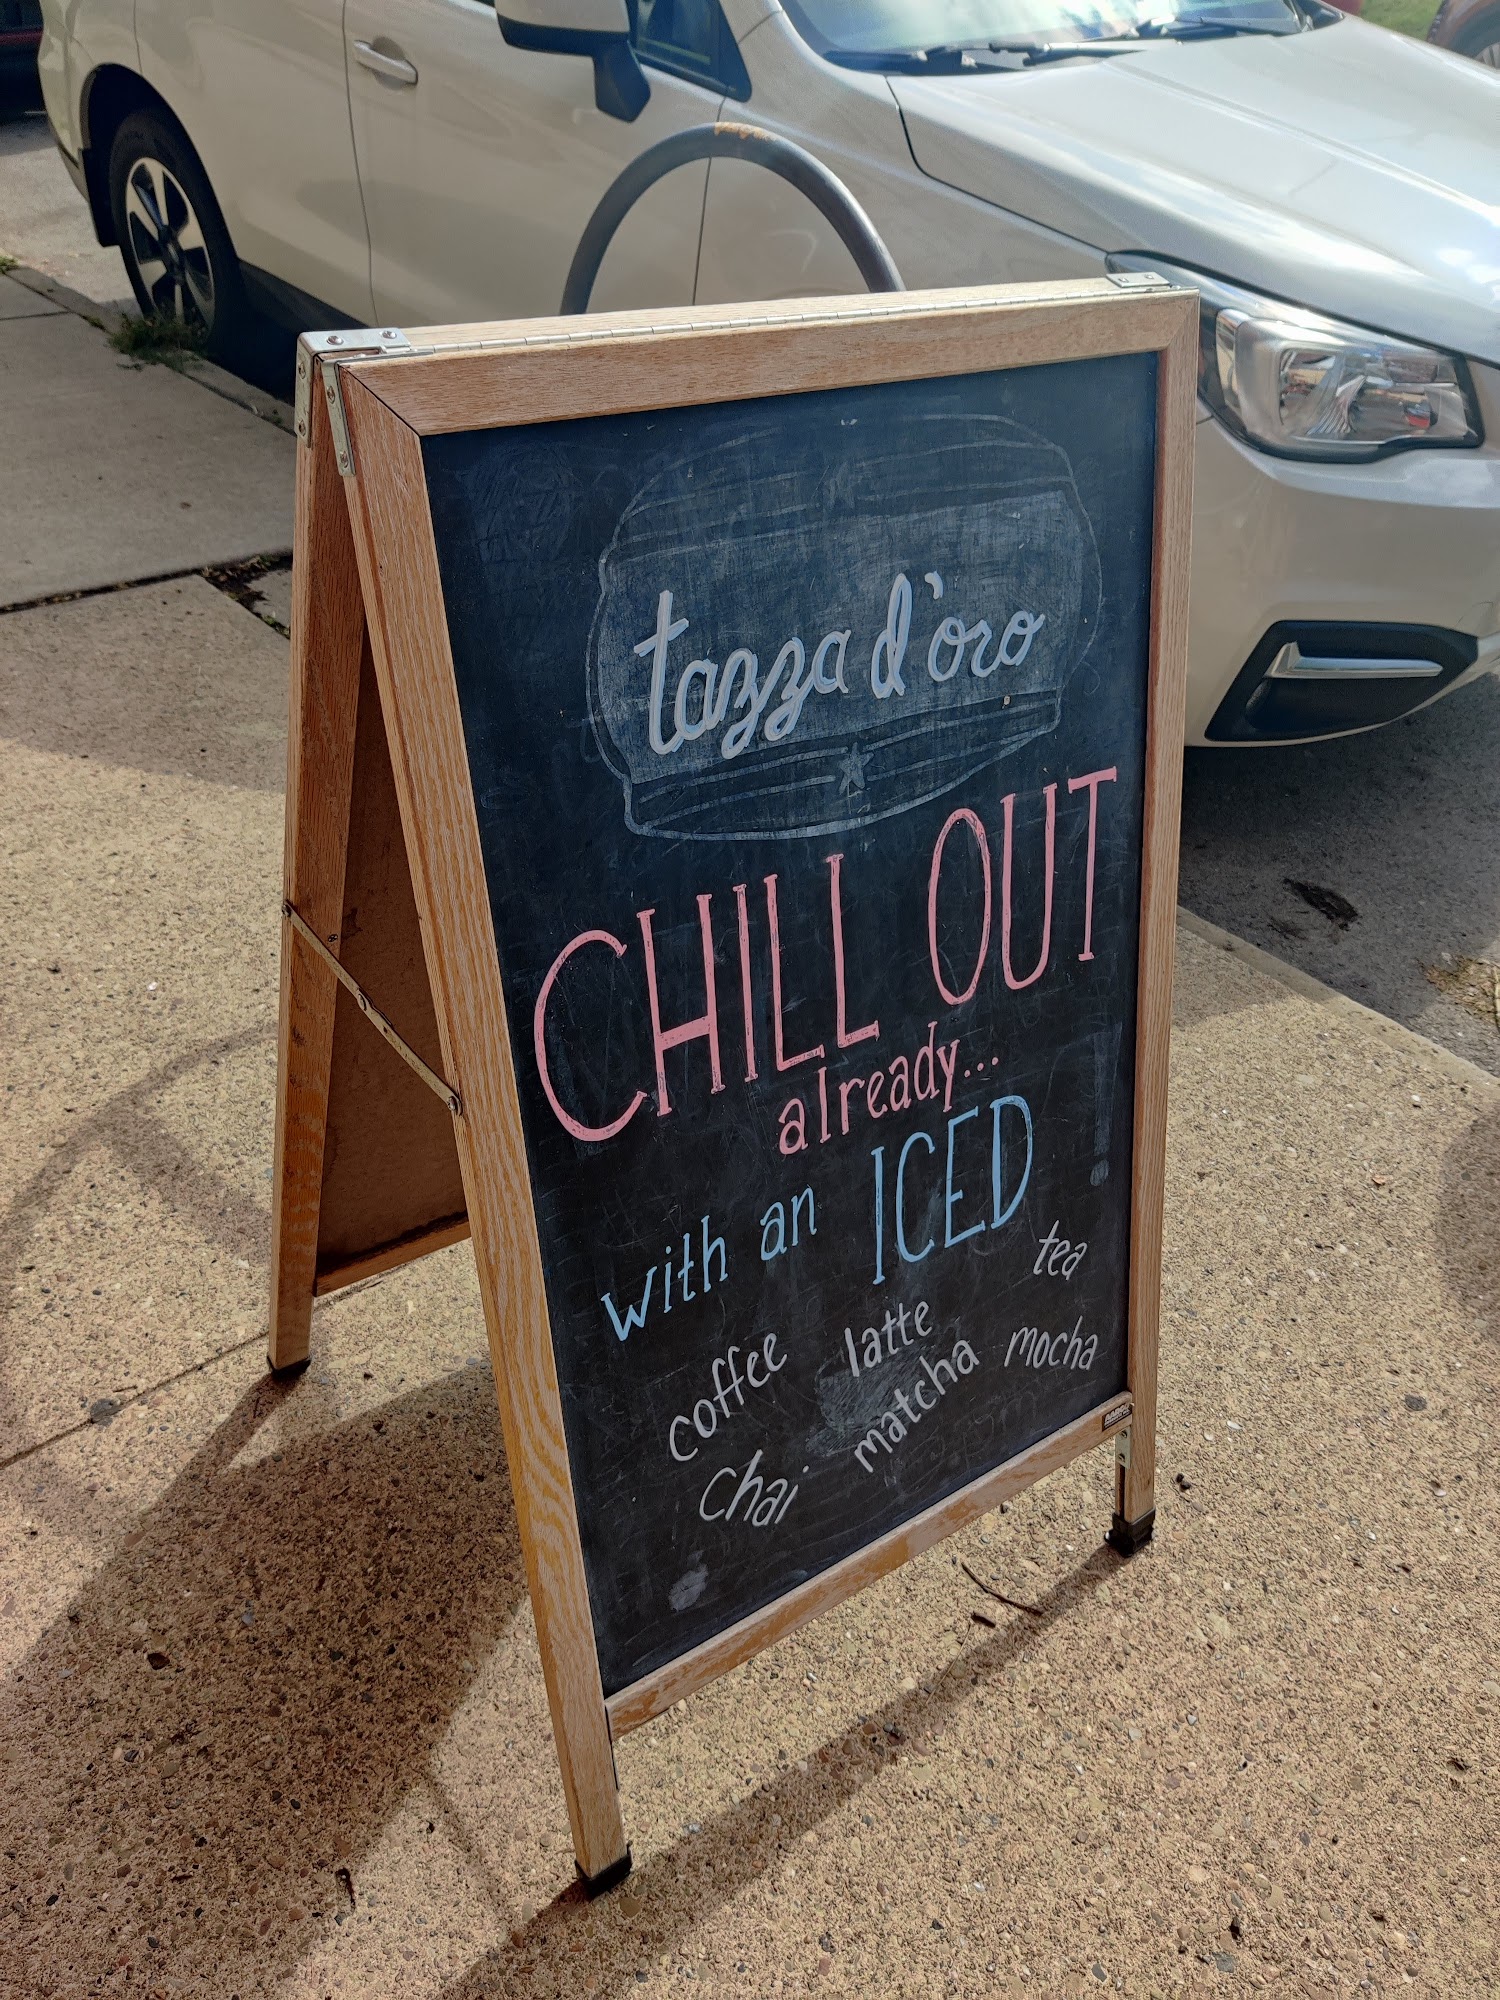 tazza d'oro
CHILL OUT
already...
with an ICED
coffee latte tea
chai matcha mocha